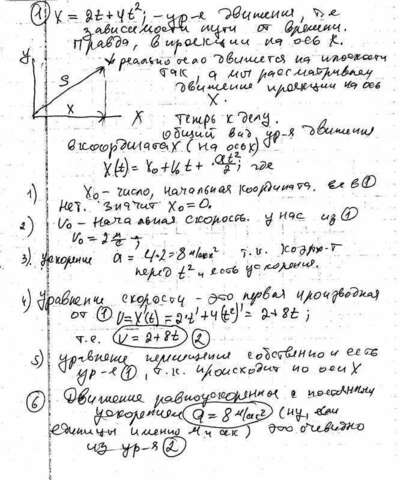 ① X = 2t + 4t²; - ур-е движения, т.е
зависимости пути от времени.
Правда, в проекции на ось X.
реально тело движется на плоскости
так, а мы рассматриваем
движение проекции на ось
X.
y
S
X
X
Теперь к делу.
Общий вид ур-я движения
в координатах (на оси x)
X(t) = X₀ + V₀t + at²/2; где
1) X₀ - число, начальная координата. её в ①
нет. Значит X₀ = 0.
2) V₀ - начальная скорость. у нас из ①
V₀ = 2 м/с;
3). ускорение a = 4·2 = 8 м/сек² т.к. коэф-т
перед t² и есть ускорения.
4) Уравнение скорости - это первая производная
от ① V = X'(t) = 2·t' + 4(t²)' = 2 + 8t;
т.е. V = 2 + 8t ②
5) ур-внение перемещения собственно и есть
ур-е ①, т.к. происходит по оси X
⑥ Движение равноускоренное с постоянным
ускорением a = 8 м/сек² (ну, если
единицы именно м и сек) это очевидно
из ур-я ②